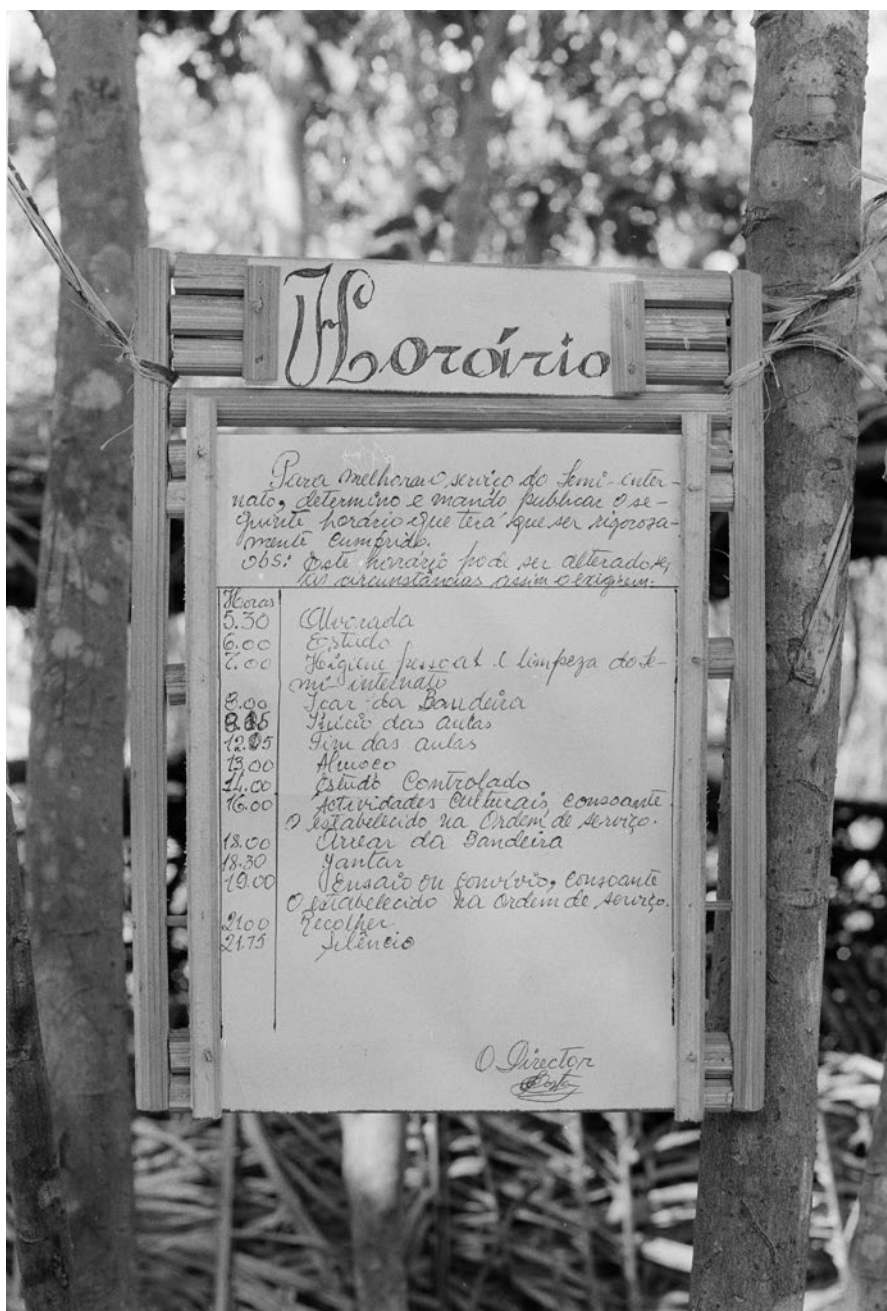 Horário
Para melhorar o serviço do Semi-inter-
nato, determino e mando publicar o se-
guinte horário que terá que ser rigorosa-
mente cumprido.
Obs: Este horário pode ser alterado se,
as circunstâncias assim o exigirem.
Horas
5.30 Alvorada
6.00 Estudo
7.00 Higiene pessoal e limpeza do se-
mi-internato
8.00 Içar da Bandeira
8.15 Início das aulas
12.05 Fim das aulas
13.00 Almoço
14.00 Estudo Controlado
16.00 Actividades Culturais, consoante
o estabelecido na Ordem de serviço.
18.00 Arrear da Bandeira
18.30 Jantar
19.00 Ensaio ou convívio, consoante
o estabelecido na Ordem de serviço.
21.00 Recolher
21.75 Silêncio
O Director